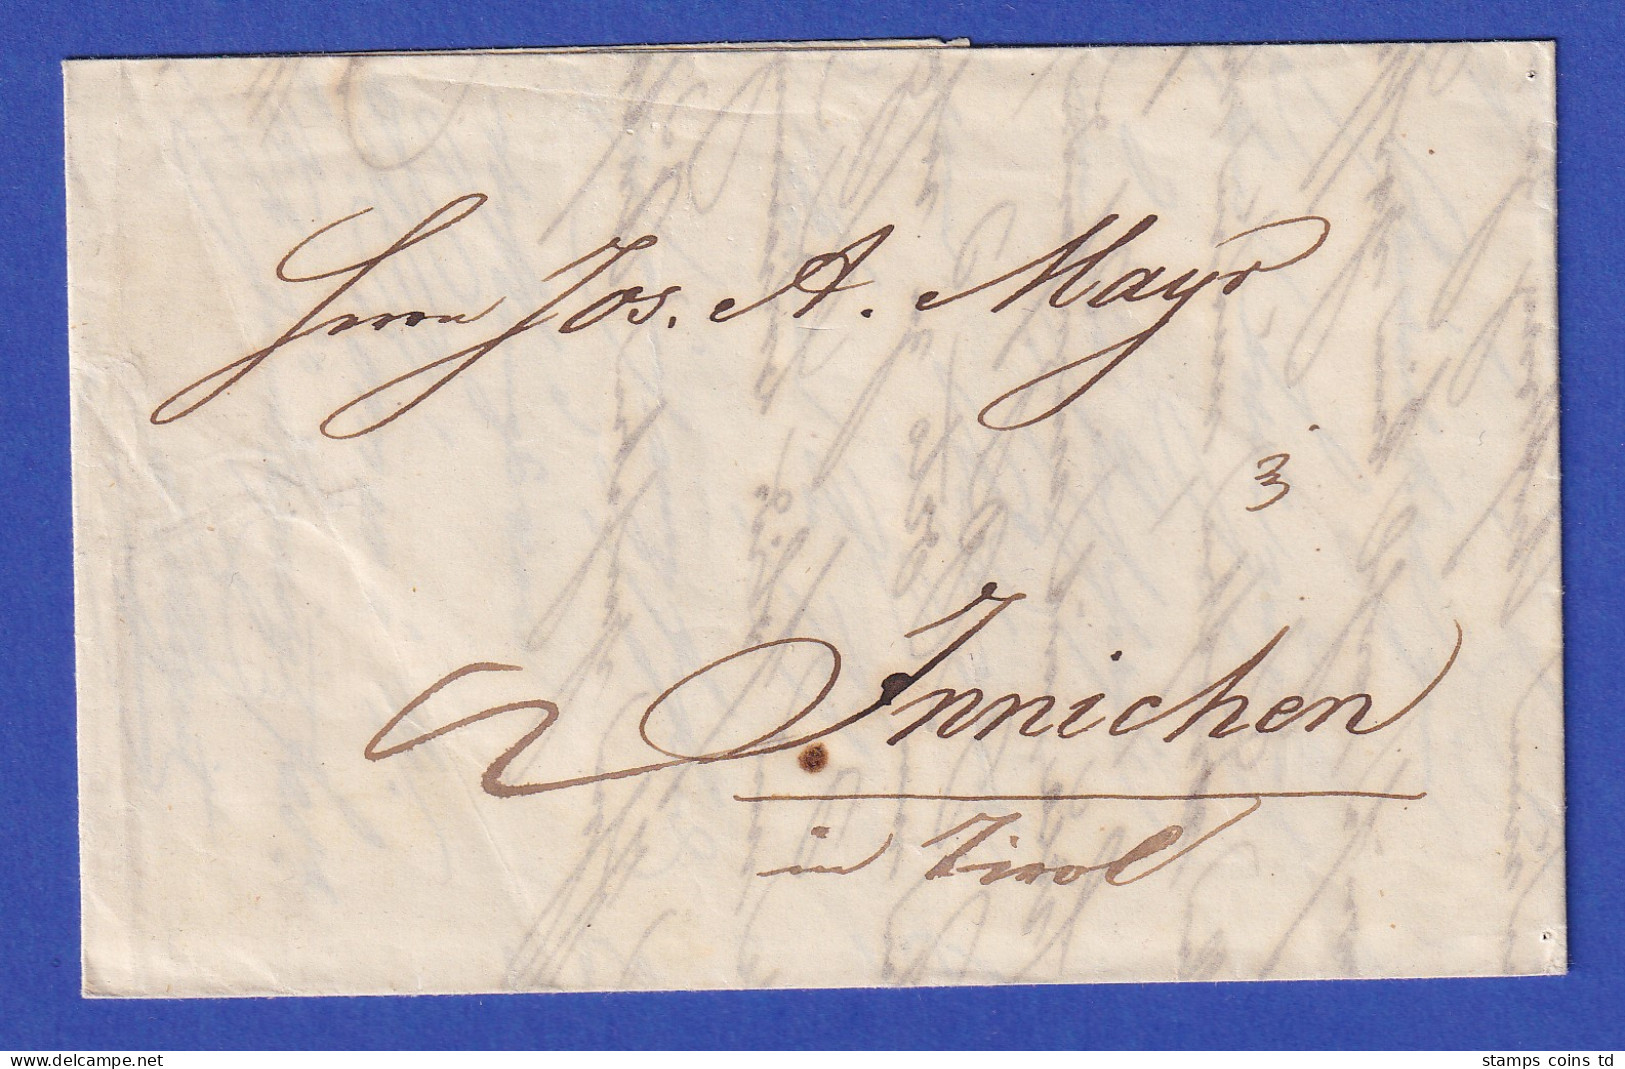 Herrn Jos. A. Mayr
3
Innichen
in Tirol
www.delcampe.net
stamps coins td